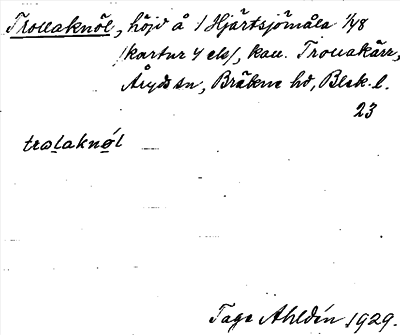 Trollaknöl, höjd å /Hjärtsjömåla 1/48
/kartur 4 els/, kall. Trollakärr,
Åryds sn, Bräkne hd, Blek. l.
23
trolaknöl
Tage Ahldén 1929.